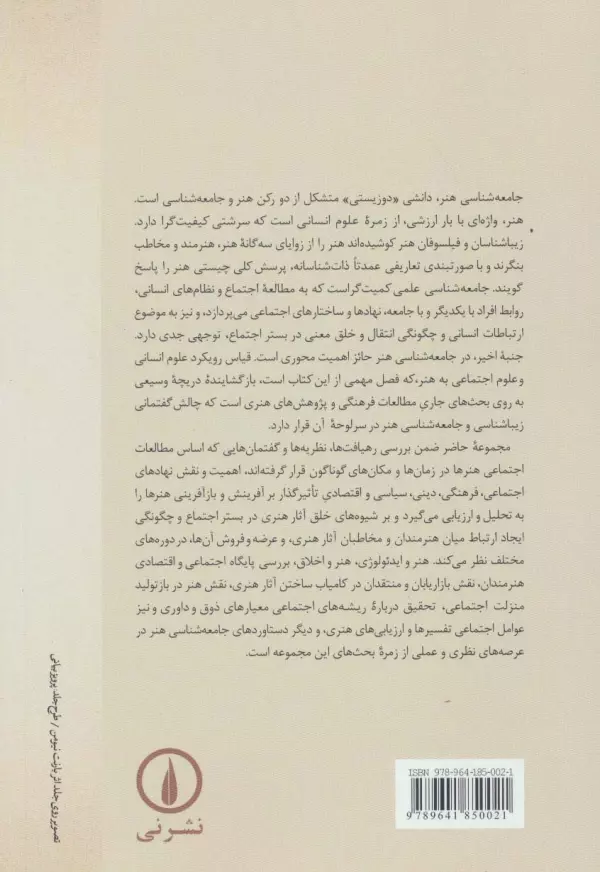 جامعه‌شناسی هنر، دانشی «دوزیستی» متشکل از دو رکن هنر و جامعه‌شناسی است.
هنر، واژه‌ای با بار ارزشی، از زمرهٔ علوم انسانی است که سرشتی کیفیت‌گرا دارد.
زیباشناسان و فیلسوفان هنر کوشیده‌اند هنر را از زوایای سه‌گانهٔ هنر، هنرمند و مخاطب
بنگرند و با صورتبندی تعاریفی عمدتاً ذات‌شناسانه، پرسش کلی چیستی هنر را پاسخ
گویند. جامعه‌شناسی علمی کمیت‌گراست که به مطالعهٔ اجتماع و نظام‌های انسانی،
روابط افراد با یکدیگر و با جامعه، نهادها و ساختارهای اجتماعی می‌پردازد، و نیز به موضوع
ارتباطات انسانی و چگونگی انتقال و خلق معنی در بستر اجتماع، توجهی جدی دارد.
جنبهٔ اخیر، در جامعه‌شناسی هنر حائز اهمیت محوری است. قیاس رویکرد علوم انسانی
و علوم اجتماعی به هنر، که فصل مهمی از این کتاب است، بازگشایندهٔ دریچهٔ وسیعی
به روی بحث‌های جاریِ مطالعات فرهنگی و پژوهش‌های هنری است که چالش گفتمانی
زیباشناسی و جامعه‌شناسی هنر در سرلوحهٔ آن قرار دارد.
مجموعهٔ حاضر ضمن بررسی رهیافت‌ها، نظریه‌ها و گفتمان‌هایی که اساس مطالعات
اجتماعی هنرها در زمان‌ها و مکان‌های گوناگون قرار گرفته‌اند، اهمیت و نقش نهادهای
اجتماعی، فرهنگی، دینی، سیاسی و اقتصادیِ تأثیرگذار بر آفرینش و بازآفرینی هنرها را
به تحلیل و ارزیابی می‌گیرد و بر شیوه‌های خلق آثار هنری در بستر اجتماع و چگونگی
ایجاد ارتباط میان هنرمندان و مخاطبان آثار هنری، و عرضه و فروش آن‌ها، در دوره‌های
مختلف نظر می‌کند. هنر و ایدئولوژی، هنر و اخلاق، بررسی پایگاه اجتماعی و اقتصادی
هنرمندان، نقش بازاریابان و منتقدان در کامیاب ساختن آثار هنری، نقش هنر در بازتولید
منزلت اجتماعی، تحقیق دربارهٔ ریشه‌های اجتماعی معیارهای ذوق و داوری و نیز
عوامل اجتماعی تفسیرها و ارزیابی‌های هنری، و دیگر دستاوردهای جامعه‌شناسی هنر در
عرصه‌های نظری و عملی از زمرهٔ بحث‌های این مجموعه است.
تصویر روی جلد اثر بارنت نیومن / طرح جلد: پرویز بیانی
نشر نی
ISBN 978-964-185-002-1
9789641850021